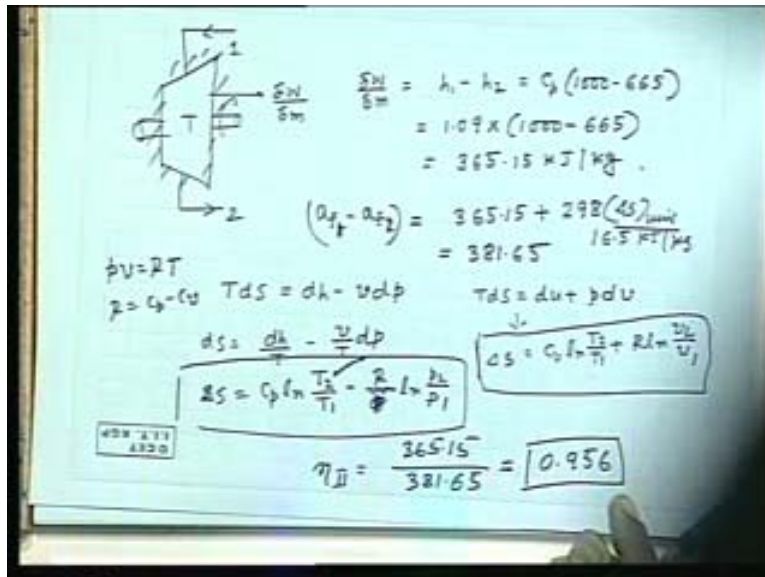 1
T
δW/δm
2
δW/δm = h₁ - h₂ = Cp (1000 - 665)
= 1.09 × (1000 - 665)
= 365.15 KJ/kg.
(af₁ - af₂) = 365.15 + 298 (ΔS)univ
16.5 KJ/kg
= 381.65
pv = RT
R = Cp - Cv
Tds = dh - vdp
Tds = du + pdv
ds = dh/T - v/T dp
ΔS = Cp ln T₂/T₁ - R ln p₂/p₁
ΔS = Cv ln T₂/T₁ + R ln v₂/v₁
I.I.T. KGP
ηII = 365.15/381.65 = 0.956